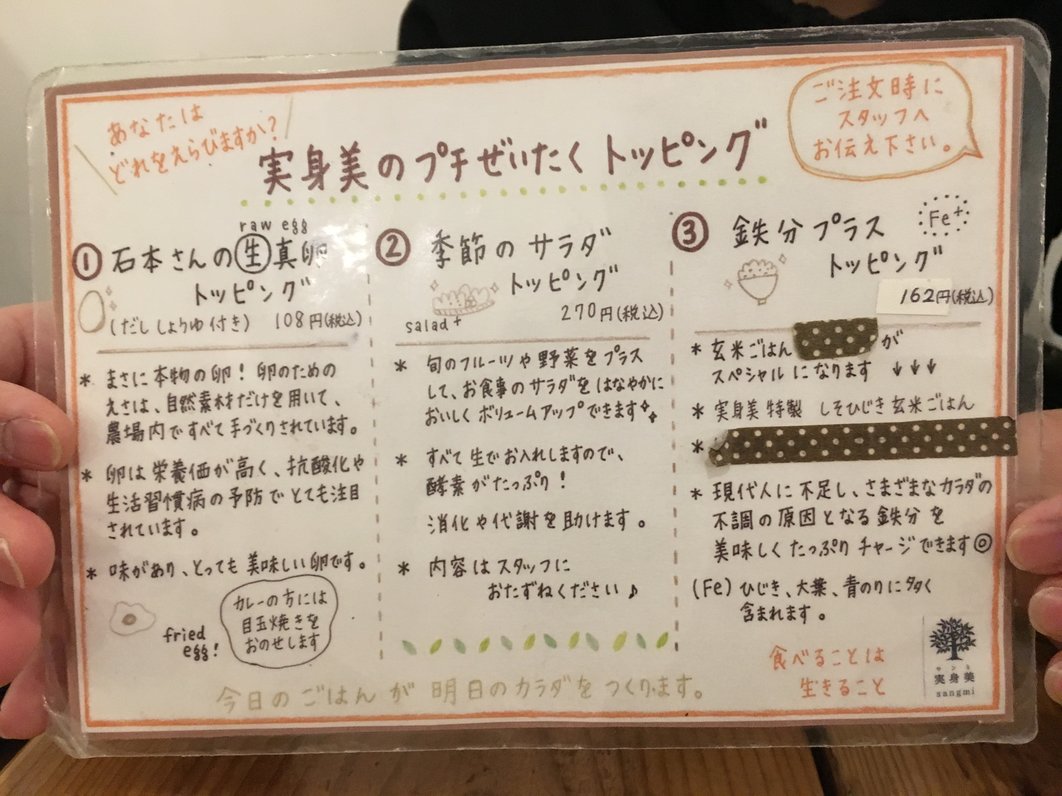 あなたは
どれをえらびますか?
ご注文時に
スタッフへ
お伝え下さい。
実身美のプチぜいたくトッピング
raw egg
① 石本さんの生真卵
トッピング
(だししょうゆ付き) 108円(税込)
* まさに本物の卵! 卵のための
えさは、自然素材だけを用いて、
農場内ですべて手づくりされています。
* 卵は栄養価が高く、抗酸化や
生活習慣病の予防でとても注目
されています。
* 味があり、とっても美味しい卵です。
fried
egg!
カレーの方には
目玉焼きを
おのせします
② 季節のサラダ
トッピング
salad+
270円(税込)
* 旬のフルーツや野菜をプラス
して、お食事のサラダをはなやかに
おいしくボリュームアップできます
* すべて生でお入れしますので、
酵素がたっぷり!
消化や代謝を助けます。
* 内容はスタッフに
おたずねください♪
③ 鉄分プラス
トッピング
Fe+
162円(税込)
* 玄米ごはん が
スペシャルになります ↓↓↓
* 実身美特製 しそひじき玄米ごはん
*
* 現代人に不足し、さまざまなカラダの
不調の原因となる鉄分を
美味しくたっぷりチャージできます◎
(Fe) ひじき、大葉、青のりに多く
含まれます。
食べることは
生きること
サンミ
実身美
sangmi
今日のごはんが明日のカラダをつくります。